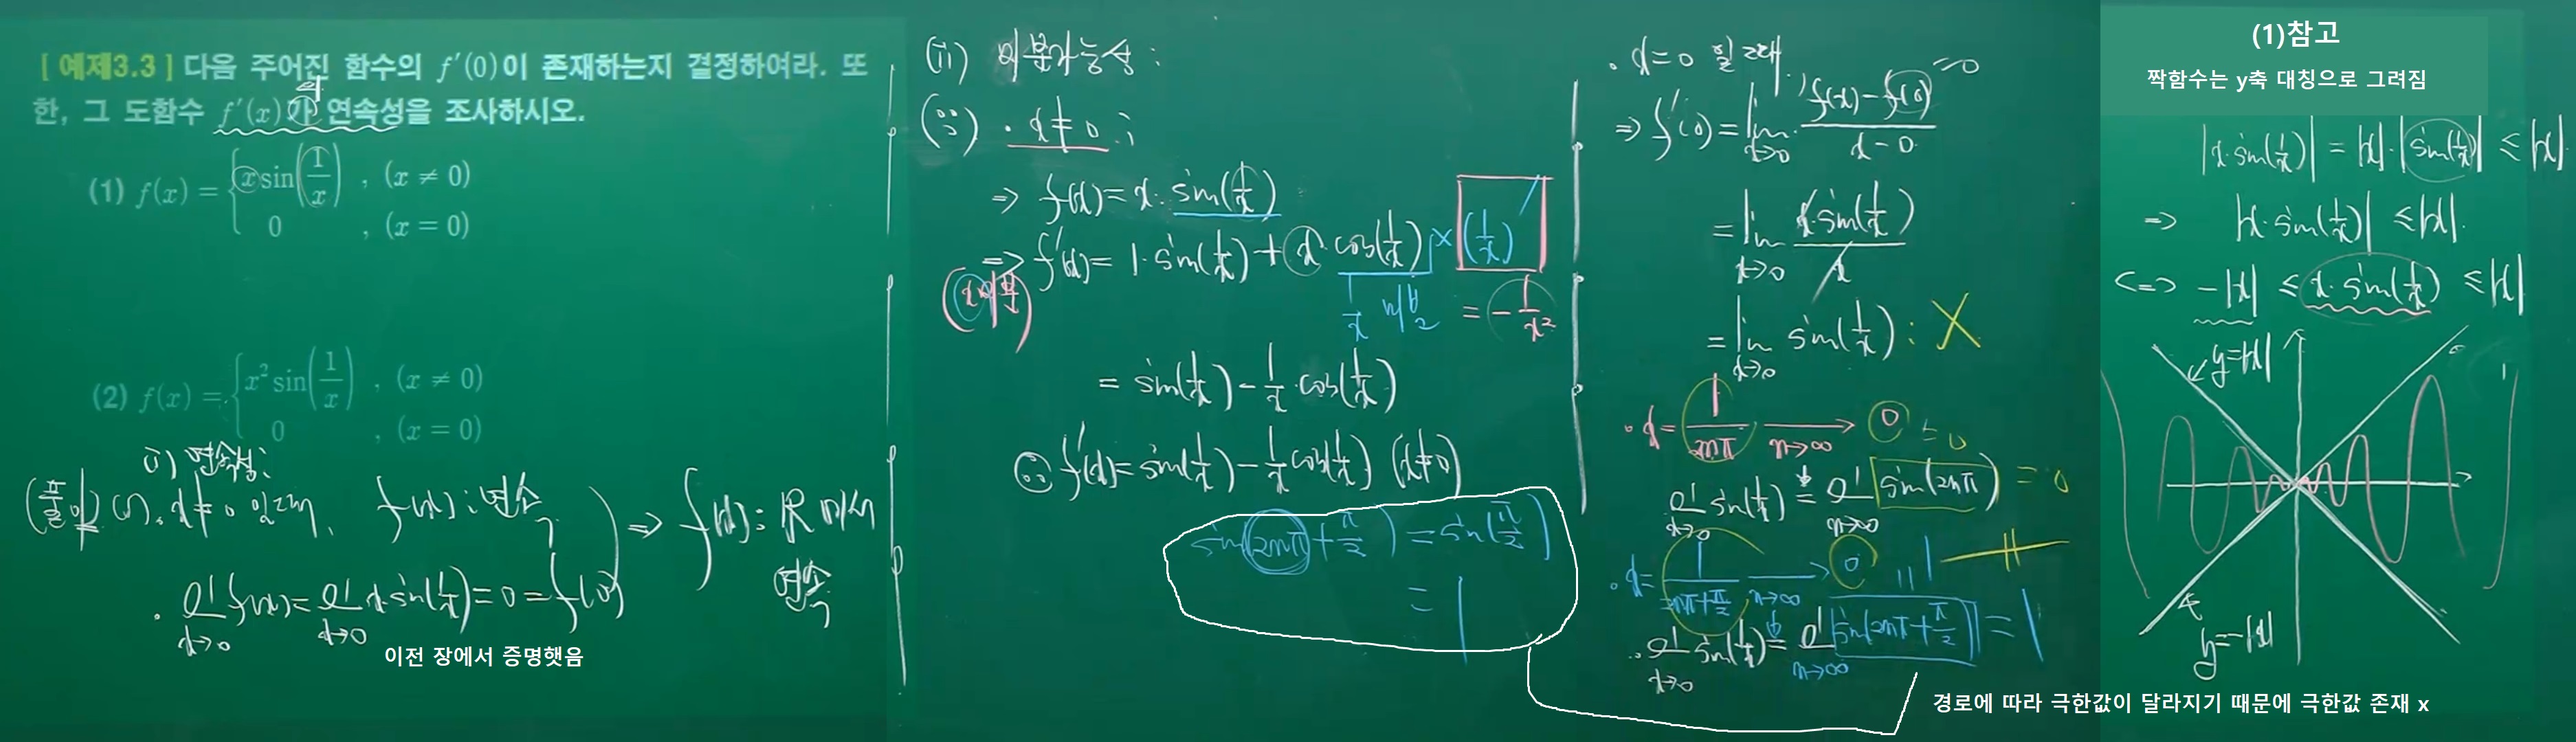 [ 예제3.3 ] 다음 주어진 함수의 f′(0)이 존재하는지 결정하여라. 또
한, 그 도함수 f′(x)가 연속성을 조사하시오.
의
(1) f(x) = { x sin(1/x) , (x ≠ 0)
0 , (x = 0)
(2) f(x) = { x² sin(1/x) , (x ≠ 0)
0 , (x = 0)
i) 연속성:
(풀이) (1). x ≠ 0 일 때, f(x) : 연속
⇒ f(x) : ℝ 에서
연속
· lim x→0 f(x) = lim x→0 x·sin(1/x) = 0 = f(0)
이전 장에서 증명햇음
(ii) 미분가능성 :
(∵) · x ≠ 0 ;
⇒ f(x) = x · sin(1/x)
⇒ f′(x) = 1·sin(1/x) + x · cos(1/x) × (1/x)′
1/x 미분 = -1/x²
= sin(1/x) - 1/x · cos(1/x)
∴ f′(x) = sin(1/x) - 1/x cos(1/x) (x ≠ 0)
sin(2nπ + π/2) = sin(π/2)
= 1
· x = 0 일 때,
⇒ f′(0) = lim x→0 (f(x) - f(0))/(x - 0)
= 0
= lim x→0 x sin(1/x) / x
= lim x→0 sin(1/x) : X
· x = 1/2nπ → n→∞ 0
lim x→0 sin(1/x) = lim n→∞ sin(2nπ) = 0
· x = 1/(2nπ + π/2) → n→∞ 0
lim x→0 sin(1/x) = lim n→∞ sin(2nπ + π/2) = 1
경로에 따라 극한값이 달라지기 때문에 극한값 존재 x
(1)참고
짝함수는 y축 대칭으로 그려짐
|x·sin(1/x)| = |x|·|sin(1/x)| ≤ |x|.
⇒ |x·sin(1/x)| ≤ |x|.
⟺ -|x| ≤ x·sin(1/x) ≤ |x|
y=|x|
y=-|x|